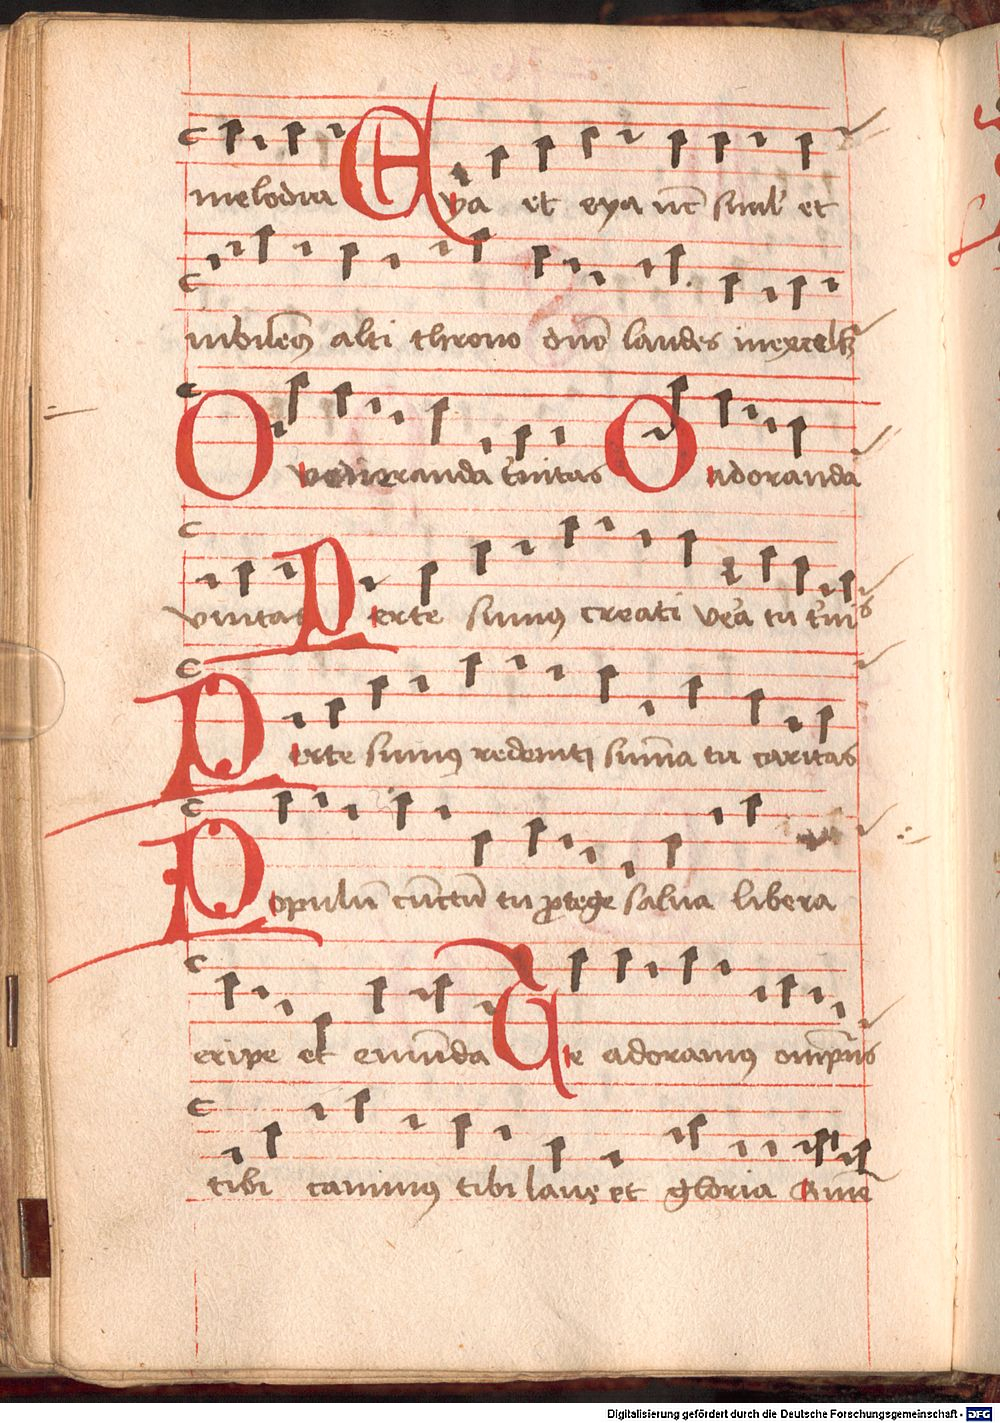 melodia Eya et eya nūc simil' et
iubilem9 alti throno dn̄o laudes in excelsꝫ
O veneranda t'nitas O adoranda
vnitas Per te sumus creati ve'a tu t'nitas
Per te sumus redempti sūma tu caritas
Populū cūctū tu ꝓtege salua libera
eripe et emūda Te adoramus om̄ps
tibi canimus tibi laus et gloria Amē
Digitalisierung gefördert durch die Deutsche Forschungsgemeinschaft - DFG